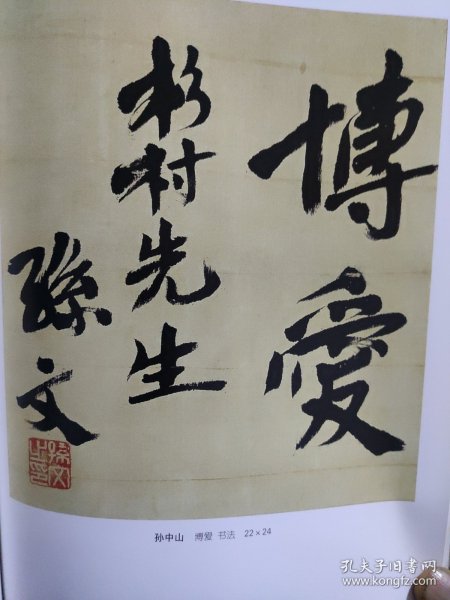 博愛
杉村先生
孫文
孫文之印
孙中山 博爱 书法 22×24
孔夫子旧书网
www.kongfz.com